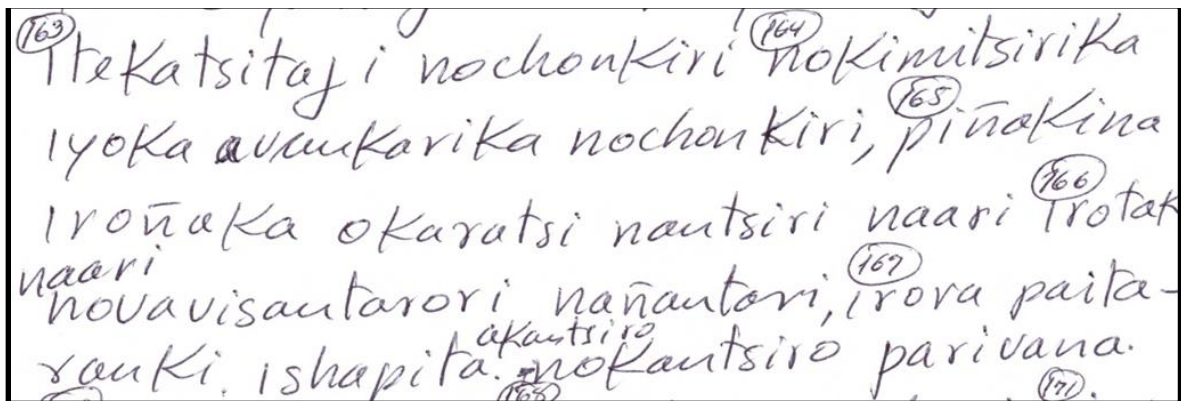 163 Itekatsitaji nochonkiri 164 nokimitsirika
iyoka avunkarika nochonkiri, 165 piñakina
iroñaka okaratsi nantsiri naari 166 irotak
naari
novavisantarori nañantari, 167 irora paita-
akantsiro
ranki. ishapita. nokantsiro parivana.
168 171